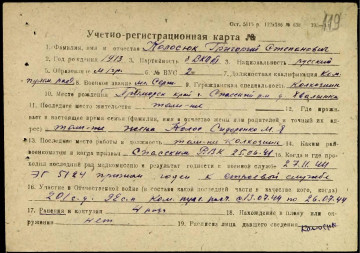 119
Учетно-регистрационная карта №
1. Фамилия, имя и отчество Колосюк Григорий Степанович
2. Год рождения 1913 3. Партийность ВЛКСМ 4. Национальность русский
5. Образование 6. ВУС 2 7. Должностная квалификация Ком.
пулем. 8. Военное звание мл. серж. 9. Гражданская специальность Колхозник
10. Место рождения Приморск. край Спасский р-н д. Хвалынка
11. Последнее место жительства там-же 12. Где прожи-
вает в настоящее время семья (фамилия, имя и отчество жены или родителей и точный их
там-же жена Колос Сидоренко М.
13. Последнее место работы и должность там-же Колхозник 14. Каким рай-
военкоматом и когда призван Спасским РВК 25.06.41 15. Когда и где про-
ходил последний раз медкомиссию и степень годности к военной службе 27.11.44
ЭГ 5124 признан годен к строевой службе
16. Участие в Отечественной войне (в составе какой последней части в качестве кого, когда)
201 с.д. 92 сп Ком. пул. с 13.07.44 по 26.07.44
17. Ранения и контузии 18. Нахождение в плену или окру-
жении нет 19. Роспись лица давшего сведения